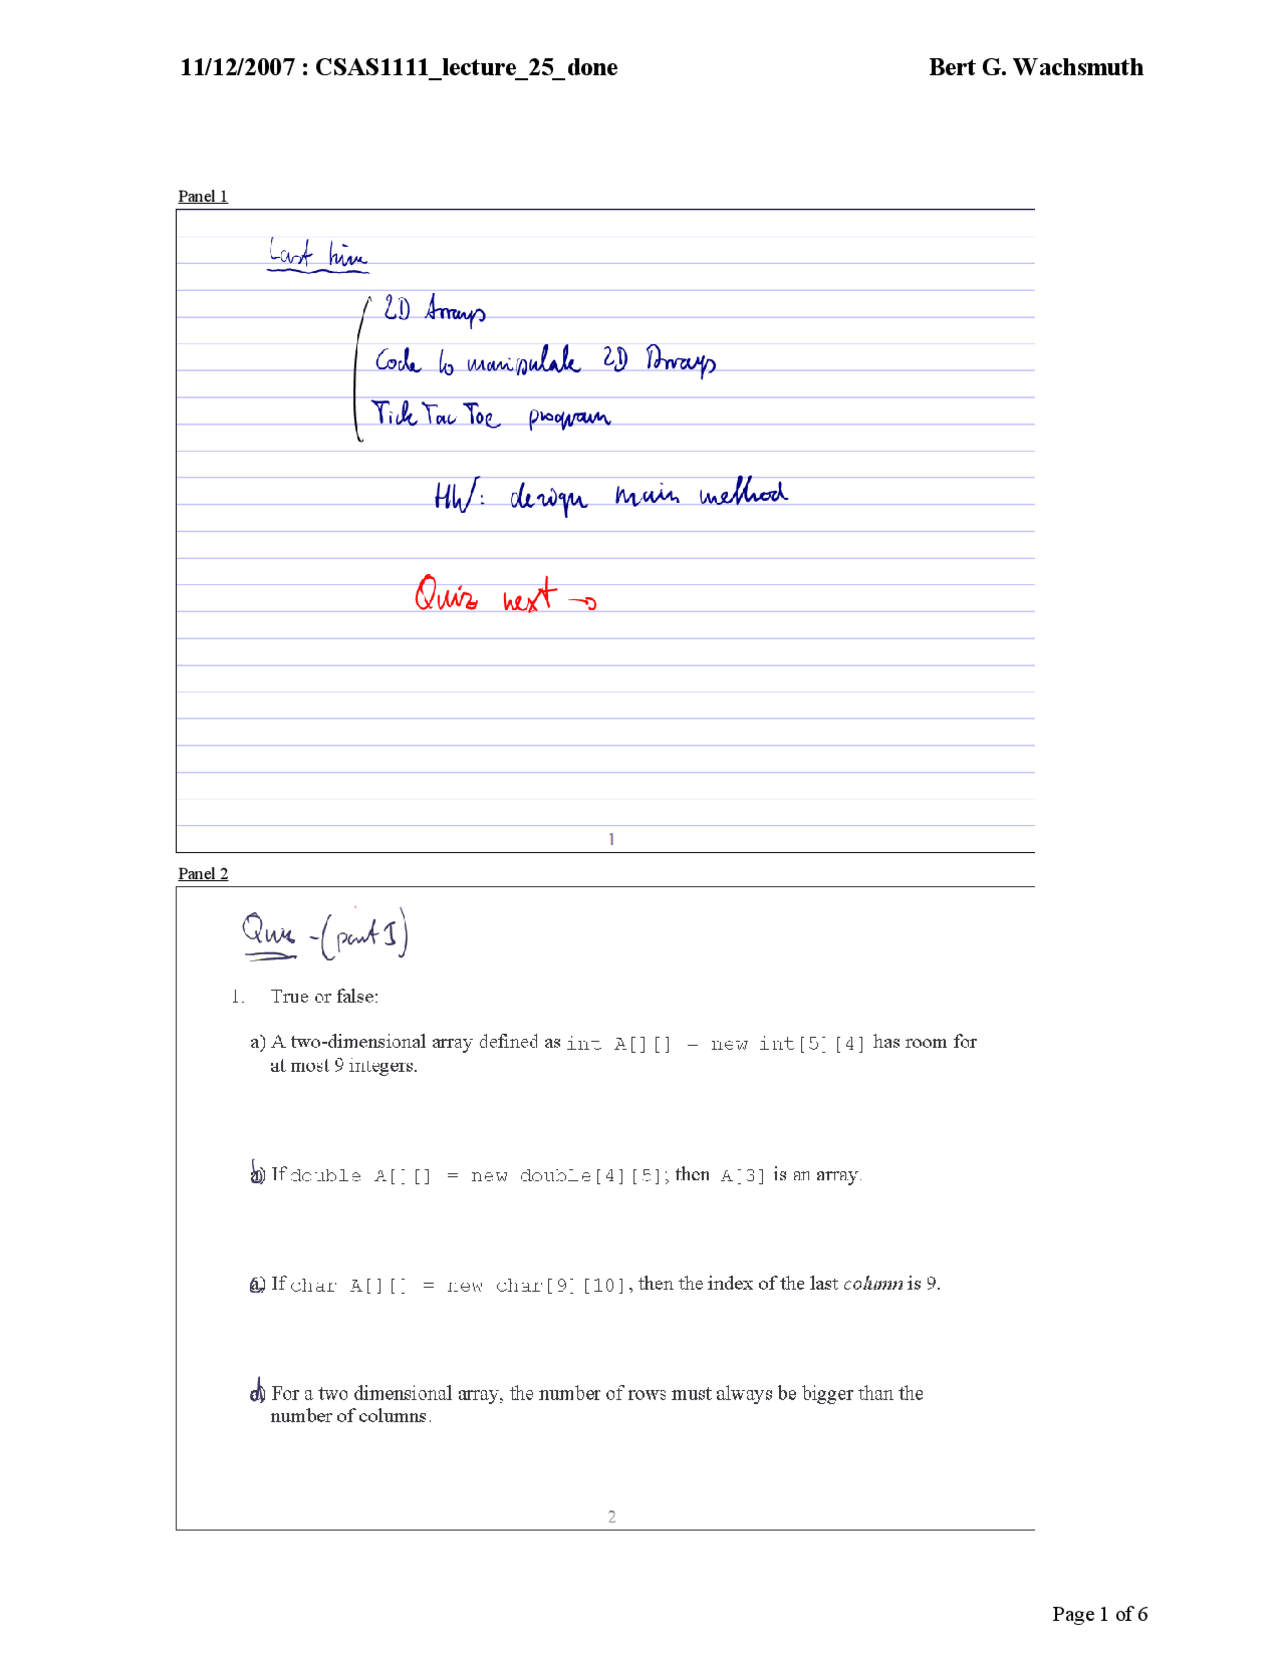 11/12/2007 : CSAS1111_lecture_25_done Bert G. Wachsmuth
Panel 1
Last time
2D Arrays
Code to manipulate 2D Arrays
Tick Tac Toe program
HW: design main method
Quiz next →
1
Panel 2
Quiz - (part I)
1. True or false:
a) A two-dimensional array defined as int A[][] = new int[5][4] has room for
at most 9 integers.
b) If double A[][] = new double[4][5]; then A[3] is an array.
c) If char A[][] = new char[9][10], then the index of the last column is 9.
d) For a two dimensional array, the number of rows must always be bigger than the
number of columns.
2
Page 1 of 6